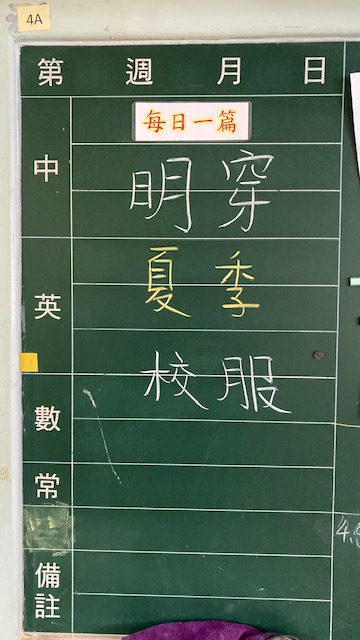 4A
第 週 月 日
每日一篇
中
明穿
英
夏季
數
校服
常
備註